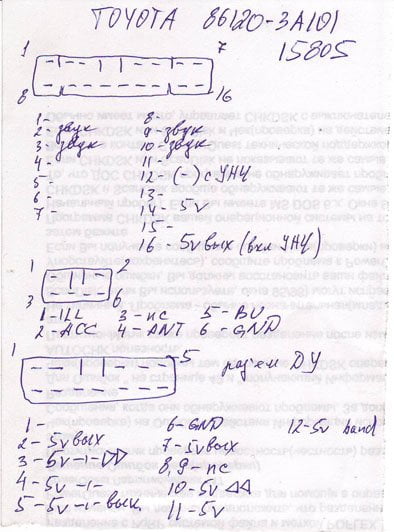 TOYOTA 86120-3A101
15805
1 7
8 16
1-
2- звук
3- звук
4-
5-
6-
7-
8-
9- звук
10- звук
11-
12- (-) с УНЧ
13-
14- 5v
15-
16 - 5v вых (вкл УНЧ)
1 2
3 6
1- ILL 3- nc 5- BU
2- ACC 4- ANT 6- GND
1 5 разем ДУ
1-
2- 5v вых
3- 5v -ı- ▷▷
4- 5v -ı-
5- 5v -ı- вык
6- GND
7- 5v вых
8,9- nc
10- 5v ◁◁
11- 5v
12-5v band